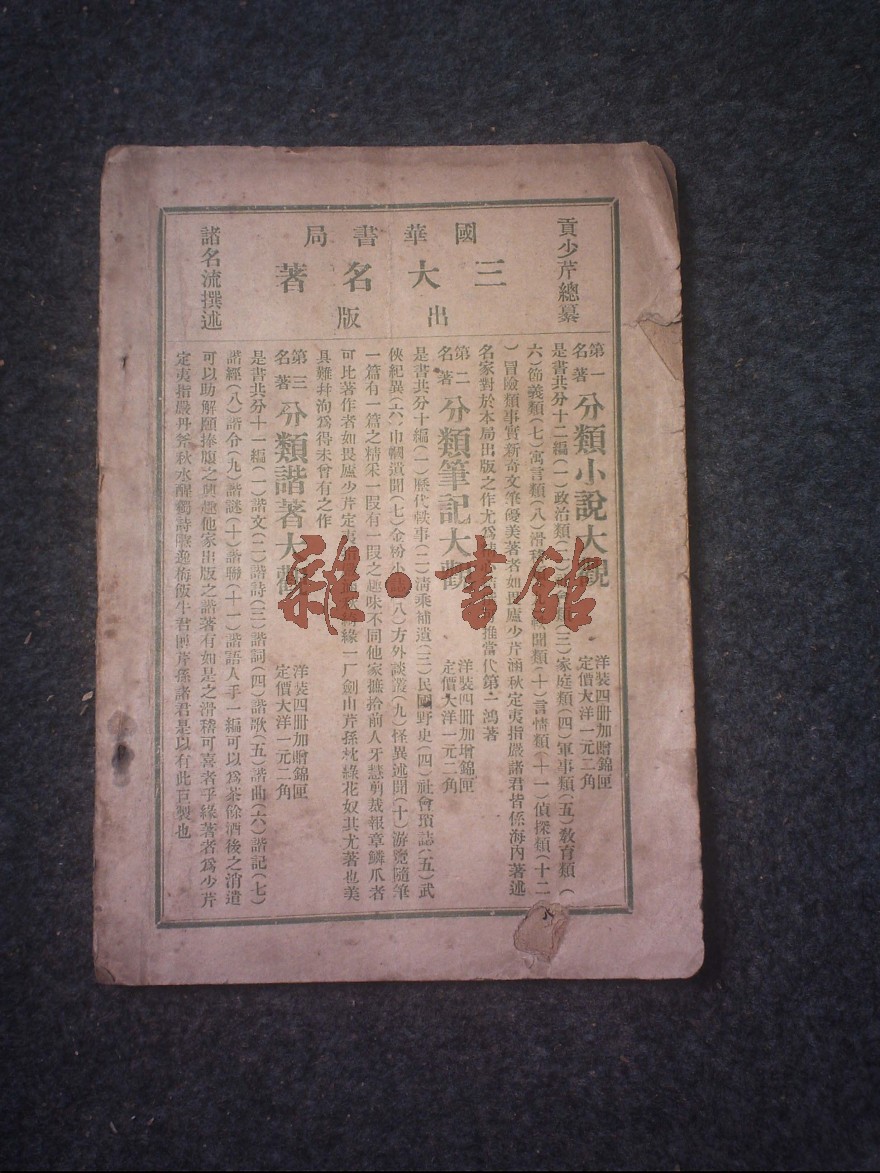 貢少芹總纂
國華書局
三大名著
出版
諸名流撰述
第一名著 分類小說大觀 洋裝四冊加贈錦匣 定價大洋一元二角
是書共分十二編(一)政治類(二) 類(三)家庭類(四)軍事類(五)教育類(
六)節義類(七)寓言類(八)滑稽 聞類(十)言情類(十一)偵探類(十二
)冒險類事實新奇文筆優美著者如畏廬少芹涵秋定夷指嚴諸君皆係海內著述
名家對於本局出版之作尤爲 推當代第一鴻著
第二名著 分類筆記大觀 洋裝四冊加增錦匣 定價大洋一元二角
是書共分十編(一)歷代軼事(二)淸乘補遺(三)民國野史(四)社會瑣誌(五)武
俠紀異(六)巾幗遺聞(七)金粉小 (八)方外談叢(九)怪異述聞(十)游覽隨筆
一篇有一篇之精采一段有一段之趣味不同他家摭拾前人牙慧剪裁報章鱗爪者
可比著作者如畏廬少芹定夷 緣一厂劍山芹孫枕綠花奴其尤著也美
具難幷洵爲得未曾有之作
第三名著 分類諧著大觀 洋裝四冊加贈錦匣 定價大洋一元二角
是書共分十一編(一)諧文(二)諧詩(三)諧詞(四)諧歌(五)諧曲(六)諧記(七)
諧經(八)諧令(九)諧謎(十)諧聯(十一)諧語人手一編可以爲茶餘酒後之消遣
可以助解頤捧腹之興趣他家出版之諧著有如是之滑稽可喜者乎緣著者爲少芹
定夷指嚴丹斧秋水醒獨詩 逸梅飯牛君匋芹孫諸君是以有此 製也
雜·書館